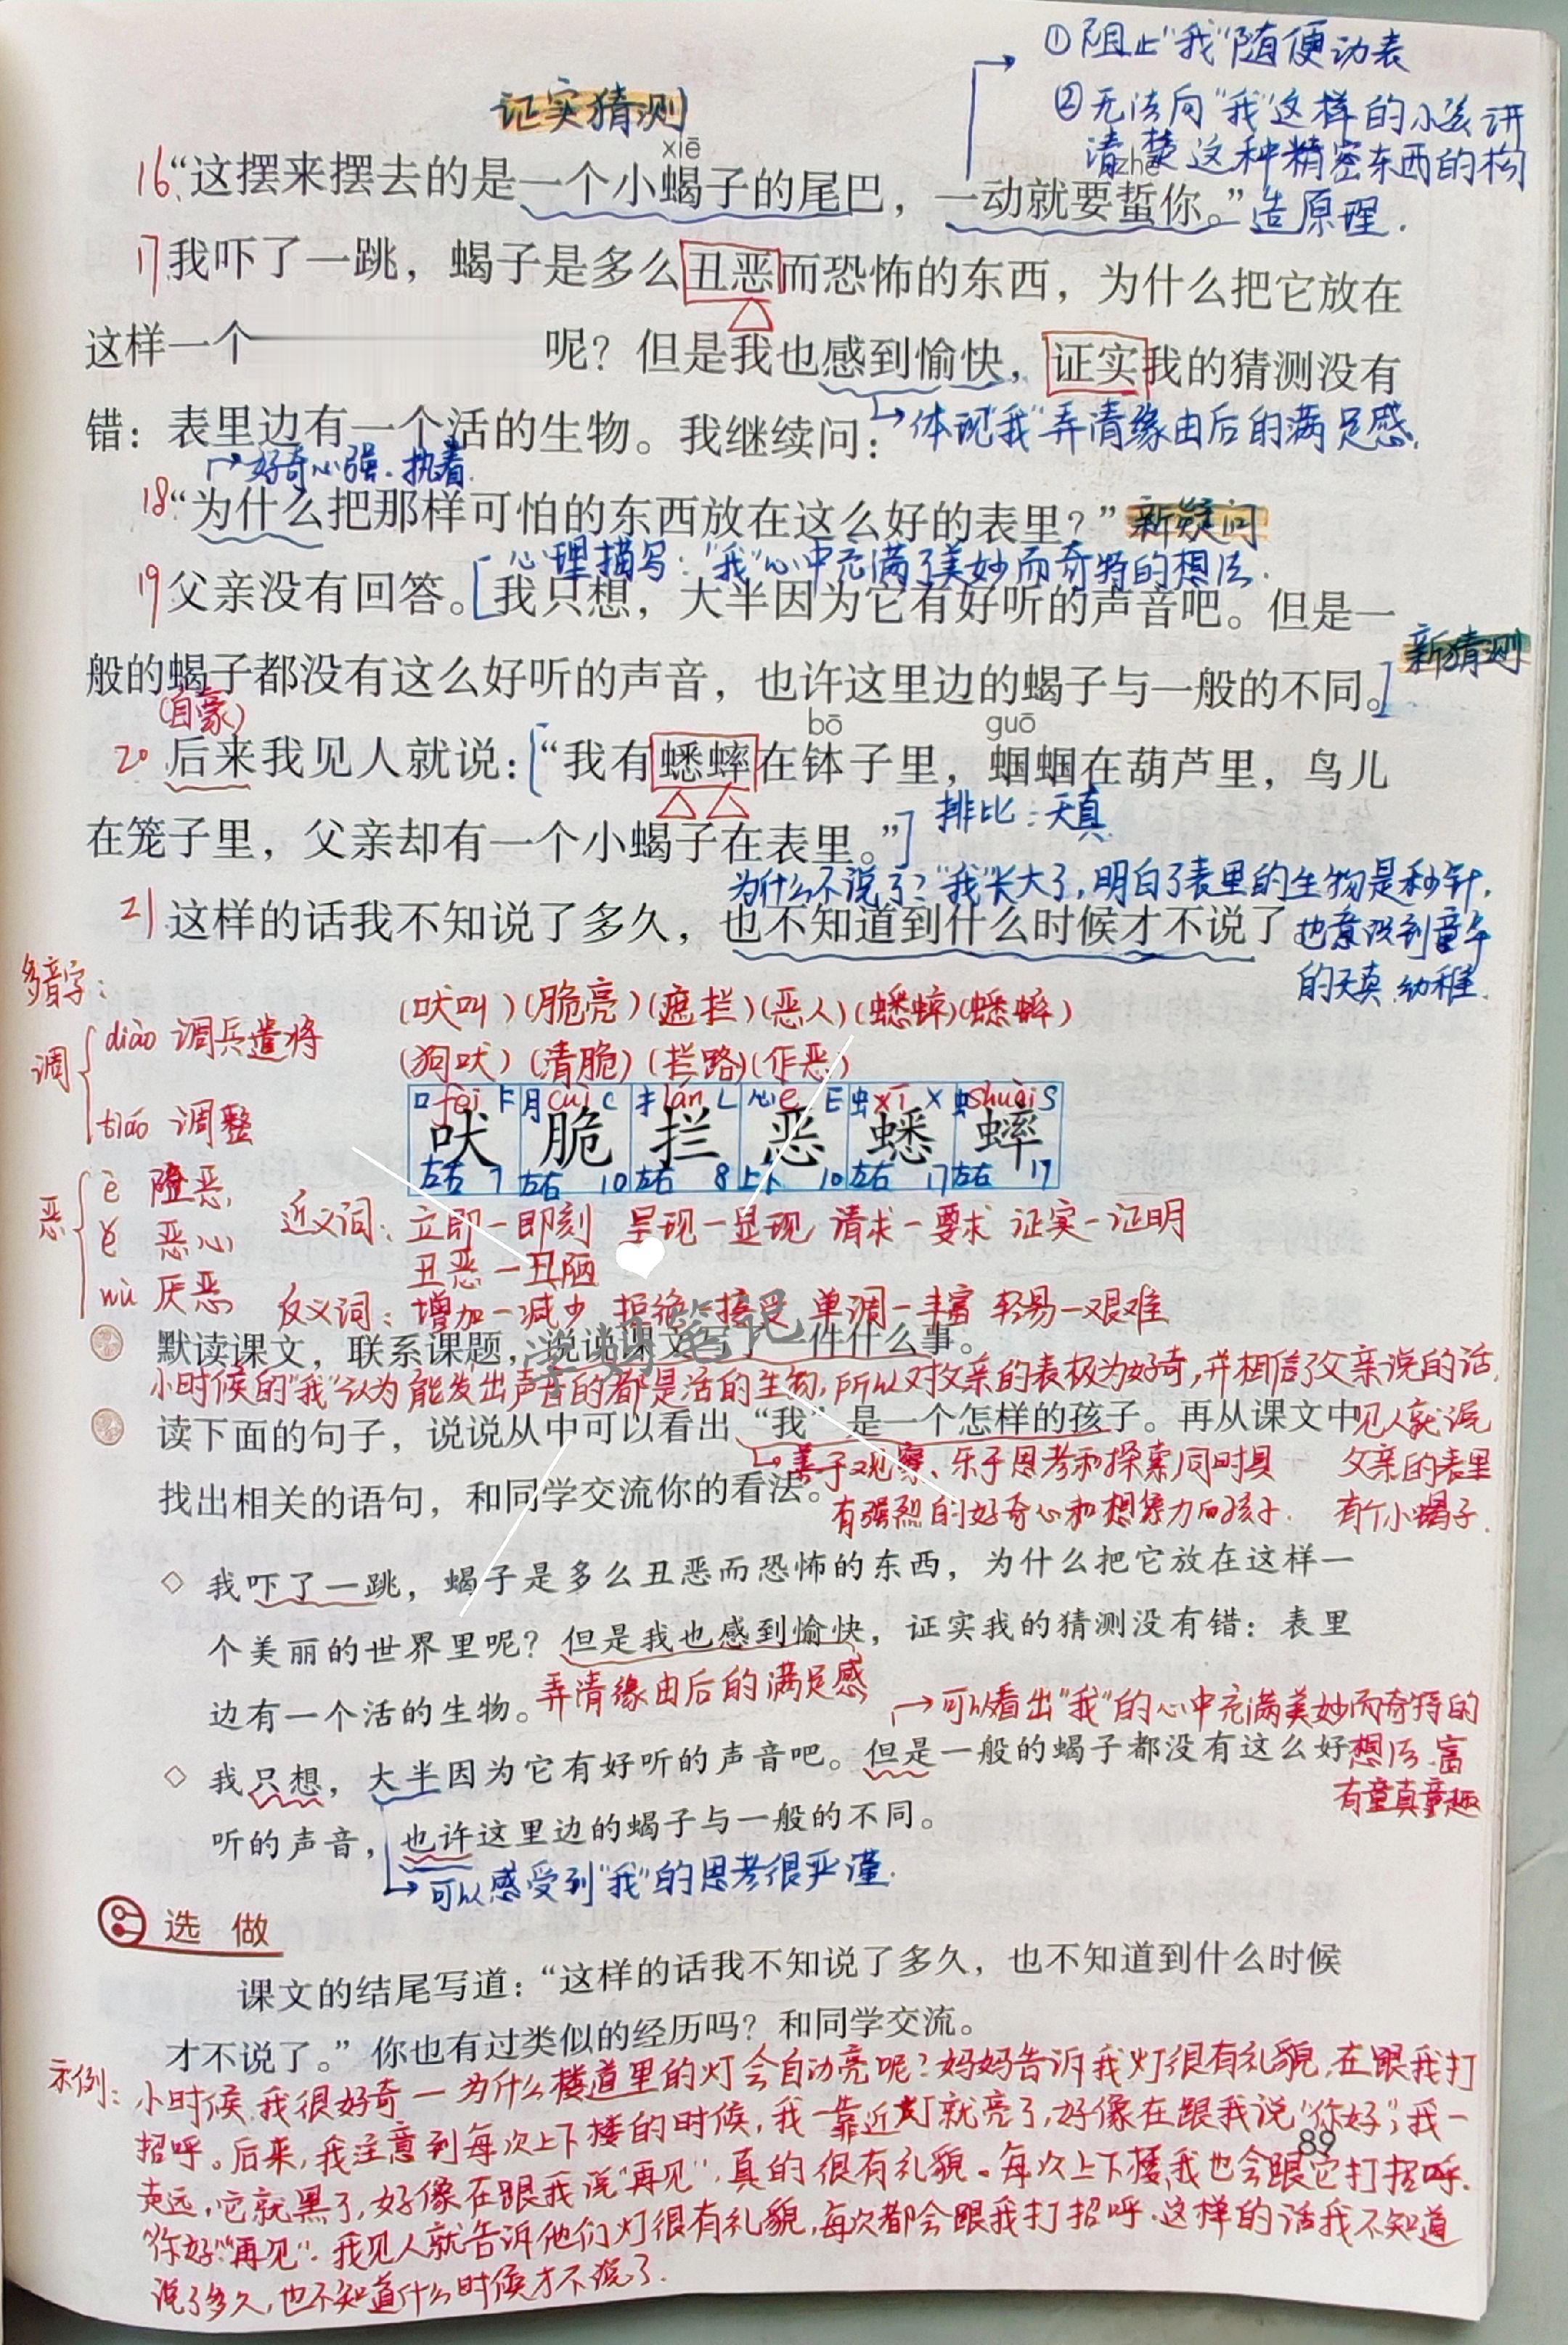 ①阻止"我"随便动表
②无法向"我"这样的小孩讲
清楚这种精密东西的构
造原理.
证实猜测
xiē
zhē
16 “这摆来摆去的是一个小蝎子的尾巴，一动就要蜇你。”
17 我吓了一跳，蝎子是多么丑恶而恐怖的东西，为什么把它放在
这样一个
呢？但是我也感到愉快，证实我的猜测没有
错：表里边有一个活的生物。我继续问：
体现"我"弄清缘由后的满足感.
好奇心强.执着.
18 “为什么把那样可怕的东西放在这么好的表里？”
新疑问
心理描写："我"心中充满了美妙而奇特的想法.
19 父亲没有回答。我只想，大半因为它有好听的声音吧。但是一
般的蝎子都没有这么好听的声音，也许这里边的蝎子与一般的不同。
新猜测
(自豪)
bō guō
20 后来我见人就说：“我有蟋蟀在钵子里，蝈蝈在葫芦里，鸟儿
在笼子里，父亲却有一个小蝎子在表里。”
排比：天真
为什么不说了？"我"长大了，明白了表里的生物是秒针，
21 这样的话我不知说了多久，也不知道到什么时候才不说了
也意识到童年
的天真.幼稚.
多音字：
调
diào 调兵遣将
tiáo 调整
恶
è 险恶
ě 恶心
wù 厌恶
(吠叫)(脆亮)(遮拦)(恶人)(蟋蟀)(蟋蟀)
(狗吠)(清脆)(拦路)(作恶)
口 fèi F 月 cuì C 扌 lán L 心 è E 虫 xī X 虫 shuài S
吠 脆 拦 恶 蟋 蟀
左右 7 左右 10 左右 8 上下 10 左右 17 左右 17
近义词：立即—即刻 呈现—显现 请求—要求 证实—证明
丑恶—丑陋
反义词：增加—减少 拒绝—接受 单调—丰富 轻易—艰难
学妈笔记
默读课文，联系课题，说说课文写了一件什么事。
小时候的"我"认为能发出声音的都是活的生物，所以对父亲的表极为好奇，并相信了父亲说的话，
见人就说
父亲的表里
有个小蝎子.
读下面的句子，说说从中可以看出“我”是一个怎样的孩子。再从课文中
找出相关的语句，和同学交流你的看法。
善于观察、乐于思考和探索同时具
有强烈的好奇心和想象力的孩子.
◇ 我吓了一跳，蝎子是多么丑恶而恐怖的东西，为什么把它放在这样一
个美丽的世界里呢？但是我也感到愉快，证实我的猜测没有错：表里
边有一个活的生物。
弄清缘由后的满足感
可以看出"我"的心中充满美妙而奇特的
想法.富
有童真童趣
◇ 我只想，大半因为它有好听的声音吧。但是一般的蝎子都没有这么好
听的声音，也许这里边的蝎子与一般的不同。
可以感受到"我"的思考很严谨.
选做
课文的结尾写道：“这样的话我不知说了多久，也不知道到什么时候
才不说了。”你也有过类似的经历吗？和同学交流。
示例：小时候，我很好奇—为什么楼道里的灯会自动亮呢？妈妈告诉我灯很有礼貌，在跟我打
招呼。后来，我注意到每次上下楼的时候，我一靠近灯就亮了，好像在跟我说"你好"；我一
走远，它就黑了，好像在跟我说"再见"，真的很有礼貌。每次上下楼，我也会跟它打招呼.
"你好""再见"。我见人就告诉他们灯很有礼貌，每次都会跟我打招呼.这样的话我不知道
说了多久，也不知道什么时候才不说了.
89